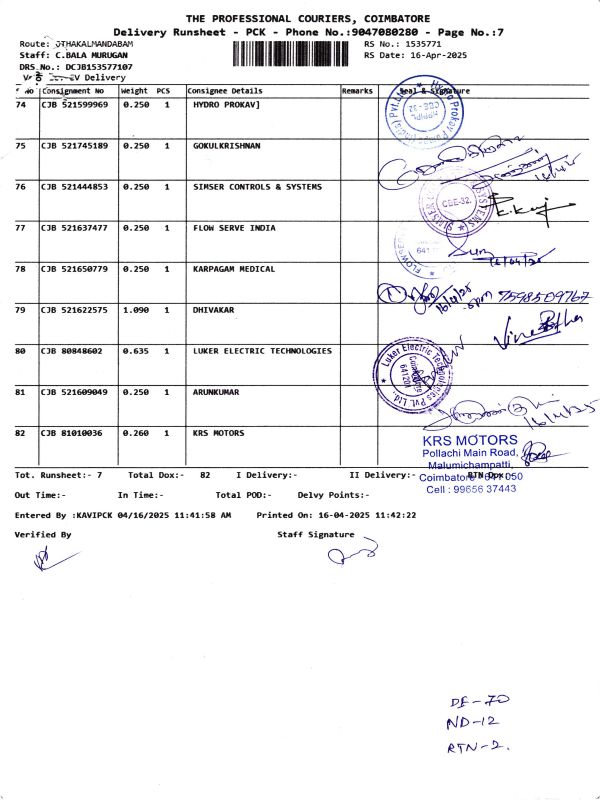 THE PROFESSIONAL COURIERS, COIMBATORE
Delivery Runsheet - PCK - Phone No.:9047080280 - Page No.:7
Route: OTHAKALMANDABAM RS No.: 1535771
Staff: C.BALA MURUGAN RS Date: 16-Apr-2025
DRS No.: DCJB153577107
Delivery
No Consignment No Weight PCS Consignee Details Remarks Seal & Signature
74 CJB 521599969 0.250 1 HYDRO PROKAV]
CBE-32
75 CJB 521745189 0.250 1 GOKULKRISHNAN
16/4/25
76 CJB 521444853 0.250 1 SIMSER CONTROLS & SYSTEMS
CBE-32.
77 CJB 521637477 0.250 1 FLOW SERVE INDIA
16/04/25
78 CJB 521650779 0.250 1 KARPAGAM MEDICAL
16/4/25 5pm 7598509767
79 CJB 521622575 1.090 1 DHIVAKAR
80 CJB 80848602 0.635 1 LUKER ELECTRIC TECHNOLOGIES
Luker Electric Technologies Pvt. Ltd.
Coimbatore 641201
81 CJB 521609049 0.250 1 ARUNKUMAR
16/4/25
82 CJB 81010036 0.260 1 KRS MOTORS
KRS MOTORS
Pollachi Main Road,
Malumichampatti,
Coimbatore - 641 050
Cell : 99656 37443
Tot. Runsheet:- 7 Total Dox:- 82 I Delivery:- II Delivery:- RTN Dox:-
Out Time:- In Time:- Total POD:- Delvy Points:-
Entered By :KAVIPCK 04/16/2025 11:41:58 AM Printed On: 16-04-2025 11:42:22
Verified By Staff Signature
DE-70
ND-12
RTN-2.